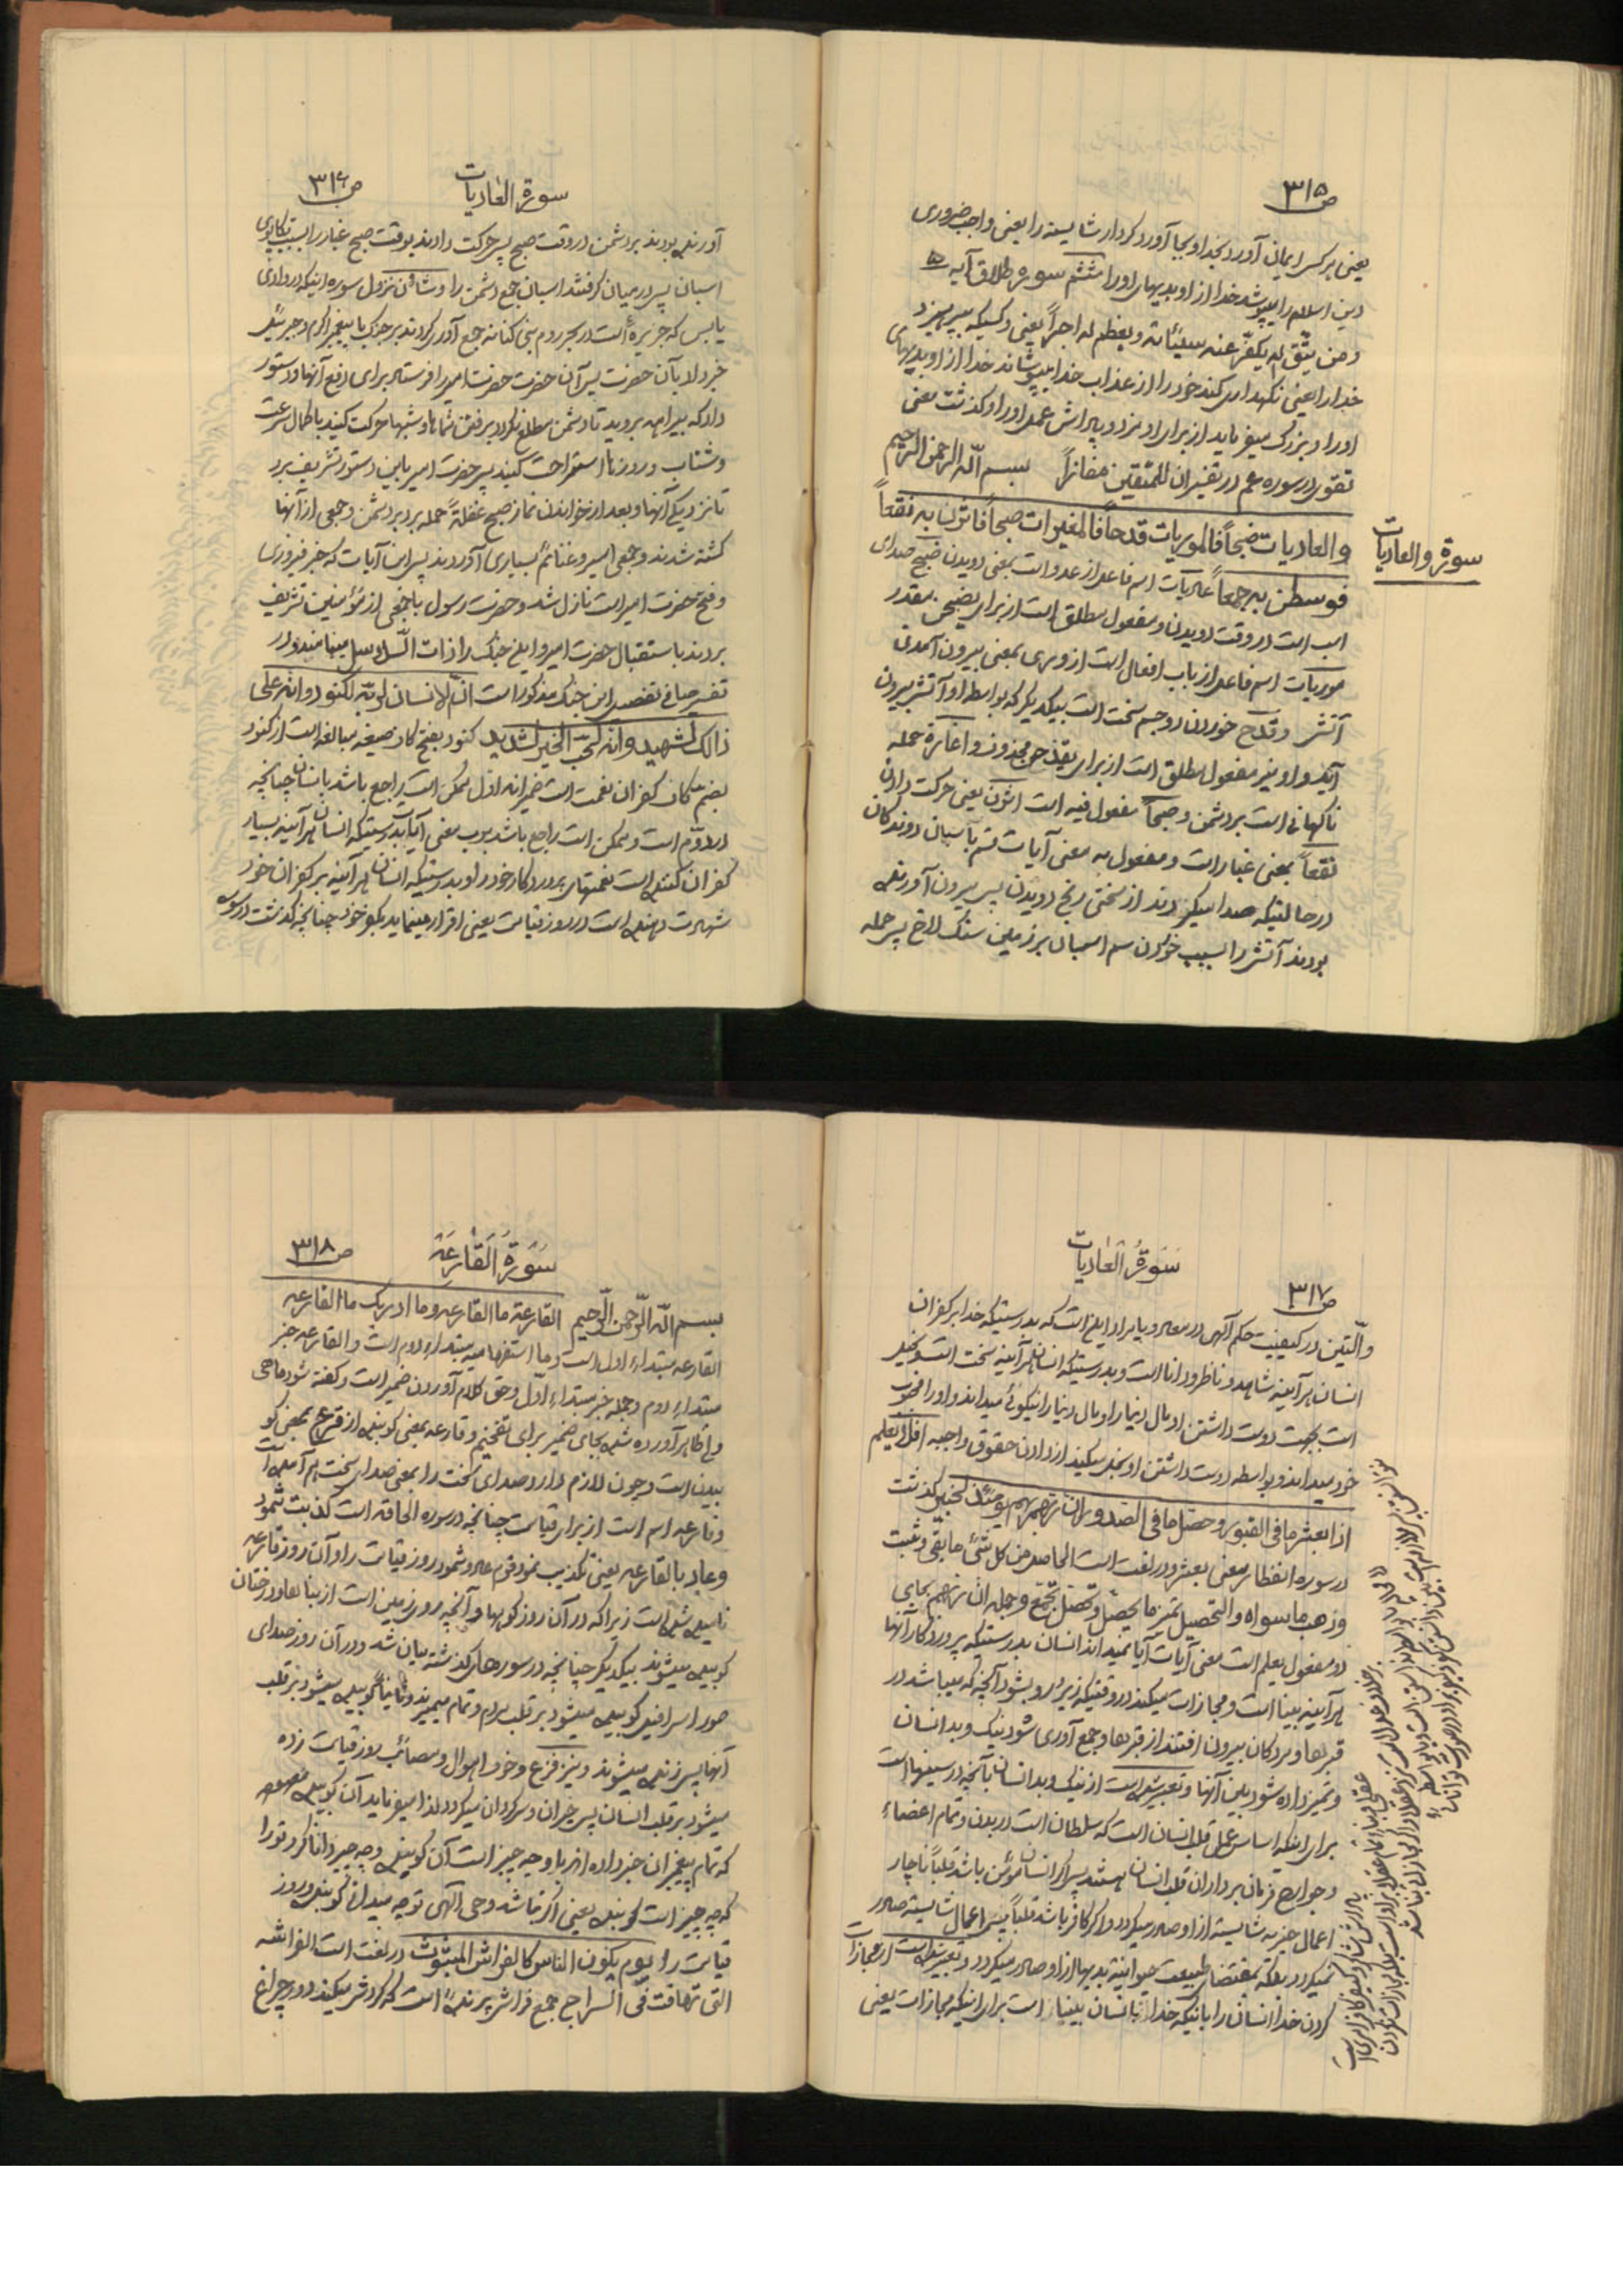 ص ۳۱۵
یعنی هر کس ایمان آورد بخدا و بجا آورد کردار شایسته را یعنی واجب ضروری
دین اسلام را بپوشد خدا از او بدیهای او را ششم سوره طلاق آیه ۵
و من یتّق الله یکفّر عنه سیئاته و یعظم له اجراً یعنی و کسیکه بپرهیزد
خدا را یعنی نگهداری کند خود را از عذاب خدا بپوشاند خدا از او بدیهای
او را و بزرگ میفرماید از برای او مزد و پاداش عمل او را و گذشت معنی
تقوی در سوره عم در تفسیر ان للمتّقین مفازاً بسم اللّه الرحمن الرحیم
سورة والعادیات
والعادیات ضبحاً فالموریات قدحاً فالمغیرات صبحاً فاثرن به نقعاً
فوسطن به جمعاً عادیات اسم فاعل از عدو است بمعنی دویدن ضبح صدای
اسب است در وقت دویدن و مفعول مطلق است از برای یضبحن مقدر
موریات اسم فاعل از باب افعال است از وری بمعنی بیرون آمدن
آتش و قدح خوردن دو جسم سخت است بیکدیگر که بواسطه او آتش بیرون
آید و او نیز مفعول مطلق است از برای یقدحن محذوف و اغاره حمله
ناگهانی است بر دشمن و صبحاً مفعول فیه است اثرن یعنی حرکت دادن
نقعاً بمعنی غبار است و مفعول به معنی آیات قسم بآسبان دوندگان
در حالتیکه صدا میکردند از سختی رنج دویدن پس بیرون آورنده
بودند آتش را بسبب خوردن سم اسبان بر زمین سنگ لاخ پس حمله
سورة العادیات ص ۳۱۶
آورنده بودند بر دشمن در وقت صبح پس حرکت دادند بوقت صبح غبار را بسبب تکاپوی
اسبان پس در میان گرفتند اسبان جمع دشمن را و شأن نزول سوره اینکه در وادی
یابس که جزیره است در بحر روم بنی کنانه جمع آوری کردند بر جنگ با پیغمبر اکرم و جبرئیل
خبر داد بآن حضرت پس آن حضرت حضرت امیر را فرستاد برای دفع آنها و دستور
داد که بیراهه بروید تا دشمن مطلع نگردد برفتن شماها و شبها حرکت کنید با کمال سرعت
و شتاب و روزها استراحت کنید پس حضرت امیر باین دستور تشریف برد
تا نزدیکی آنها و بعد از خواندن نماز صبح غفلةً حمله برد بر دشمن و جمعی از آنها
کشته شدند و جمعی اسیر و غنائم بسیاری آوردند پس این آیات که خبر فیروزی
و فتح حضرت امیر است نازل شد و حضرت رسول با جمعی از مؤمنین تشریف
بردند باستقبال حضرت امیر و این جنگ را ذات السّلاسل مینامند و در
تفسیر صافی تفصیل این جنگ مذکور است انّ الانسان لربّه لکنود و انه علی
ذالک لشهید و انه لحبّ الخیر لشدید کنود بفتح کاف صیغه مبالغه است از کنود
بضم کاف کفران نعمت است ضمیر انه اول ممکن است راجع باشد بانسان چنانچه
در دوّم است و ممکن است راجع باشد برب معنی آیات بدرستیکه انسان هرآینه بسیار
کفران کننده است نعمتهای پروردگار خود را و بدرستیکه انسان هرآینه بر کفران خود
شهادت دهنده است در روز قیامت یعنی اقرار مینماید بکفر خود چنانچه گذشت در سوره
سُورَةُ العَادیات
ص ۳۱۷
والّتین در کیفیت حکم آلهی در معاد و یا مراد این است که بدرستیکه خدا بر کفران
انسان هرآینه شاهد و ناظر و دانا است و بدرستیکه انسان هرآینه سخت است و بخیل
است بجهت دوست داشتن او مال دنیا را و مال دنیا را نیکوئی میداند و او را محبوب
خود میداند و بواسطه دوست داشتن او بخل میکند از دادن حقوق واجبه افلا یعلم
اذا بعثر ما فی القبور و حصّل ما فی الصّدور ان ربّهم بهم یومئذ لخبیر گذشت
در سوره انفطار معنی بعثر و در لغت است الحاصل من کل شئ ما بقی و ثبت
و ذهب ما سواه و التحصیل تمیز ما یحصل و تحصّل تجمّع و جمله ان ربّهم بجای
دو مفعول یعلم است معنی آیات آیا نمیداند انسان بدرستیکه پروردگار آنها
هرآینه بینا است و مجازات میکند در وقتیکه زیر و رو بشود آنچه که میباشد در
قبرها و مردگان بیرون افتند از قبرها و جمع آوری شود نیک و بد انسان
و تمیز داده شود بین آنها و تعبیر شده است از نیک و بد انسان بآنچه در سینها است
برای اینکه اساس عمل قلب انسان است که سلطان است در بدن و تمام اعضاء
و جوارح فرمان برداران قلب انسان هستند پس اگر انسان مؤمن باشد قلباً ناچار
اعمال خیریه شایسته از او صادر میگردد و اگر کافر باشد قلباً پس اعمال شایسته صادر
نمیگردد بلکه بمقتضای طبیعت حیوانیه بدیها از او صادر میگردد و تعبیر شده است از مجازات
کردن خدا انسان را باینکه خدا بانسان بینا است برای اینکه مجازات یعنی
سُورَةُ القَارِعَة ص ۳۱۸
بسم اللّه الرّحمن الرّحیم القارعة ما القارعه و ما ادریک ما القارعه
القارعه مبتداء اول است و ما استفهامیه مبتداء دوم است و القارعه خبر
مبتداء دوم و جمله خبر مبتداء اوّل و حق کلام آوردن ضمیر است و گفته شود ما هی
ولی ظاهر آورده شده بجای ضمیر برای تفخیم و قارعه بمعنی کوبنده از قرع بمعنی کو
بیدن است و چون لازم دارد صدای سخت را بمعنی صدای سخت هم آمده است
و قارعه اسم است از برای قیامت چنانچه در سوره الحاقه است کذبت ثمود
و عاد بالقارعه یعنی تکذیب نمود قوم عاد و ثمود روز قیامت را و آن روز قارعه
نامیده شده است زیرا که در آن روز کوهها و آنچه روی زمین است از بناها و درختان
کوبیده میشوند بیکدیگر چنانچه در سورهای گذشته بیان شد و در آن روز صدای
صور اسرافیل کوبیده میشود بر قلب مردم و تمام میمیرند و ثانیاً کوبیده میشود بر قلب
آنها پس زنده میشوند و نیز فزع و خوف اهوال و مصائب روز قیامت زده
میشود بر قلب انسان پس حیران و سرگردان میگردد لذا میفرماید آن کوبنده
که تمام پیغمبران خبر داده اند با و چه چیز است آن کوبنده و چه چیز دانا کرد تو را
که چه چیز است کوبنده یعنی اگر نباشد وحی الهی تو چه میدانی کوبنده روز
قیامت را یوم یکون الناس کالفراش المبثوث در لغت است الفراشه
التی تهافت فی السراج جمع فراش پرنده است که گردش میکند دور چراغ